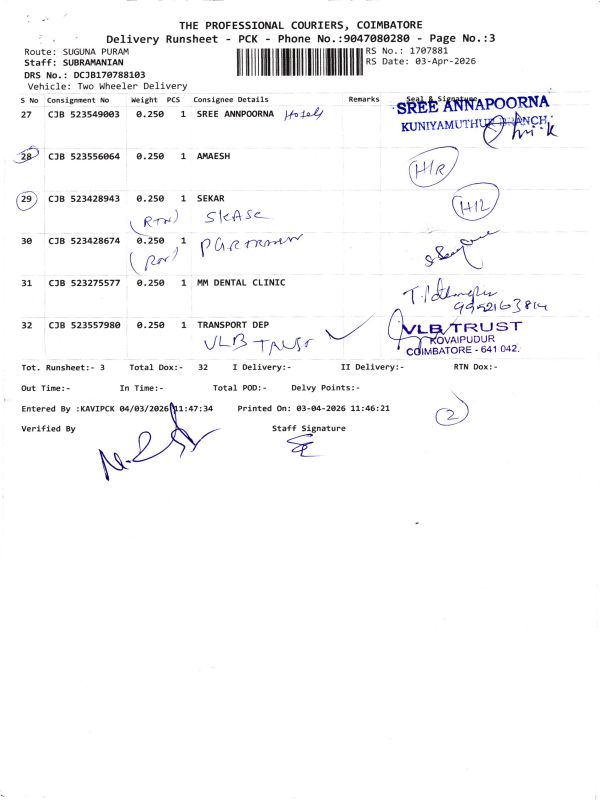 THE PROFESSIONAL COURIERS, COIMBATORE
Delivery Runsheet - PCK - Phone No.:9047080280 - Page No.:3
Route: SUGUNA PURAM
RS No.: 1707881
Staff: SUBRAMANIAN
RS Date: 03-Apr-2026
DRS No.: DCJB170788103
Vehicle: Two Wheeler Delivery
S No Consignment No Weight PCS Consignee Details Remarks Seal & Signature
27 CJB 523549003 0.250 1 SREE ANNPOORNA Hotels
SREE ANNAPOORNA
KUNIYAMUTHUR BRANCH
28 CJB 523556064 0.250 1 AMAESH
H/R
29 CJB 523428943 0.250 1 SEKAR
(RTN)
30 CJB 523428674 0.250 1
31 CJB 523275577 0.250 1 MM DENTAL CLINIC
32 CJB 523557980 0.250 1 TRANSPORT DEP
VLB TRUST
VLB TRUST
KOVAIPUDUR
COIMBATORE - 641 042.
Tot. Runsheet:- 3 Total Dox:- 32 I Delivery:- II Delivery:- RTN Dox:-
Out Time:- In Time:- Total POD:- Delvy Points:-
Entered By :KAVIPCK 04/03/2026 11:47:34 Printed On: 03-04-2026 11:46:21
2
Verified By Staff Signature